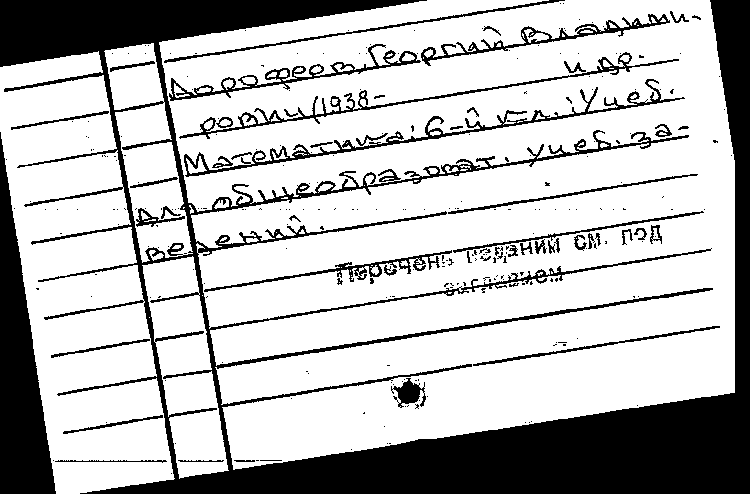 Дорофеев, Георгий Владими-
рович (1938- и др.
Математика: 6-й кл.: Учеб.
для общеобразоват. учеб. за-
ведений.
Перечень изданий см. под
заглавием